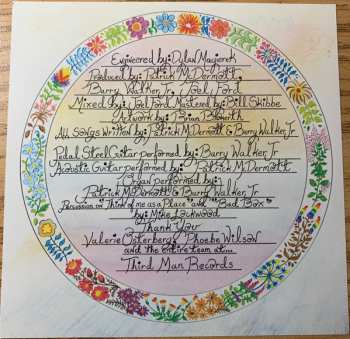 Engineered by: Dylan Magierek
Produced by: Patrick McDermott,
Barry Walker, Jr., Joel Ford
Mixed by: Joel Ford Mastered by: Bill Skibbe
Artwork by: Brian Blomerth
All Songs Written by: Patrick McDermott & Barry Walker, Jr.
Pedal Steel Guitar performed by: Barry Walker, Jr.
Acoustic Guitar performed by: Patrick McDermott
performed by:
Patrick McDermott & Barry Walker, Jr.
Percussion on "Think of me as a Place" and "Bad Box"
by: Mike Lockwood
Thank You
Valerie Osterberg, Phoebe Wilson
and the entire team at...
Third Man Records